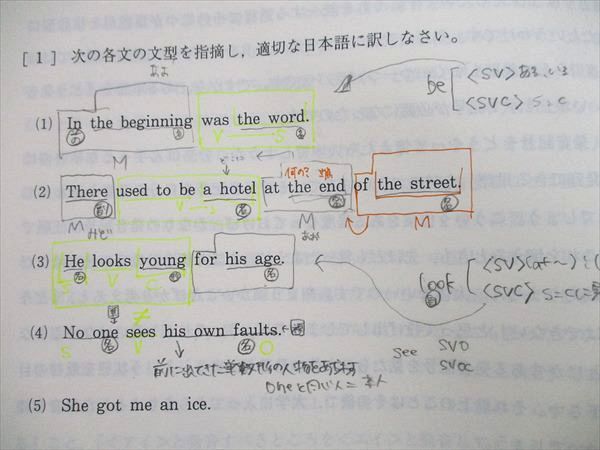 [1] 次の各文の文型を指摘し，適切な日本語に訳しなさい。
be <SV> ある，いる
<SVC> S=C
(1) In the beginning was the word.
前 名 V S 名
M
(2) There used to be a hotel at the end of the street.
副 V 名 名 名
M M M
(3) He looks young for his age.
名 形 名
S V C M
look <SV> (at
自 <SVC> S=C
≠
(4) No one sees his own faults.
S 名 V 名 O
see SVO
SVOC
前に出てきた
oneと同じ人＝本人
(5) She got me an ice.